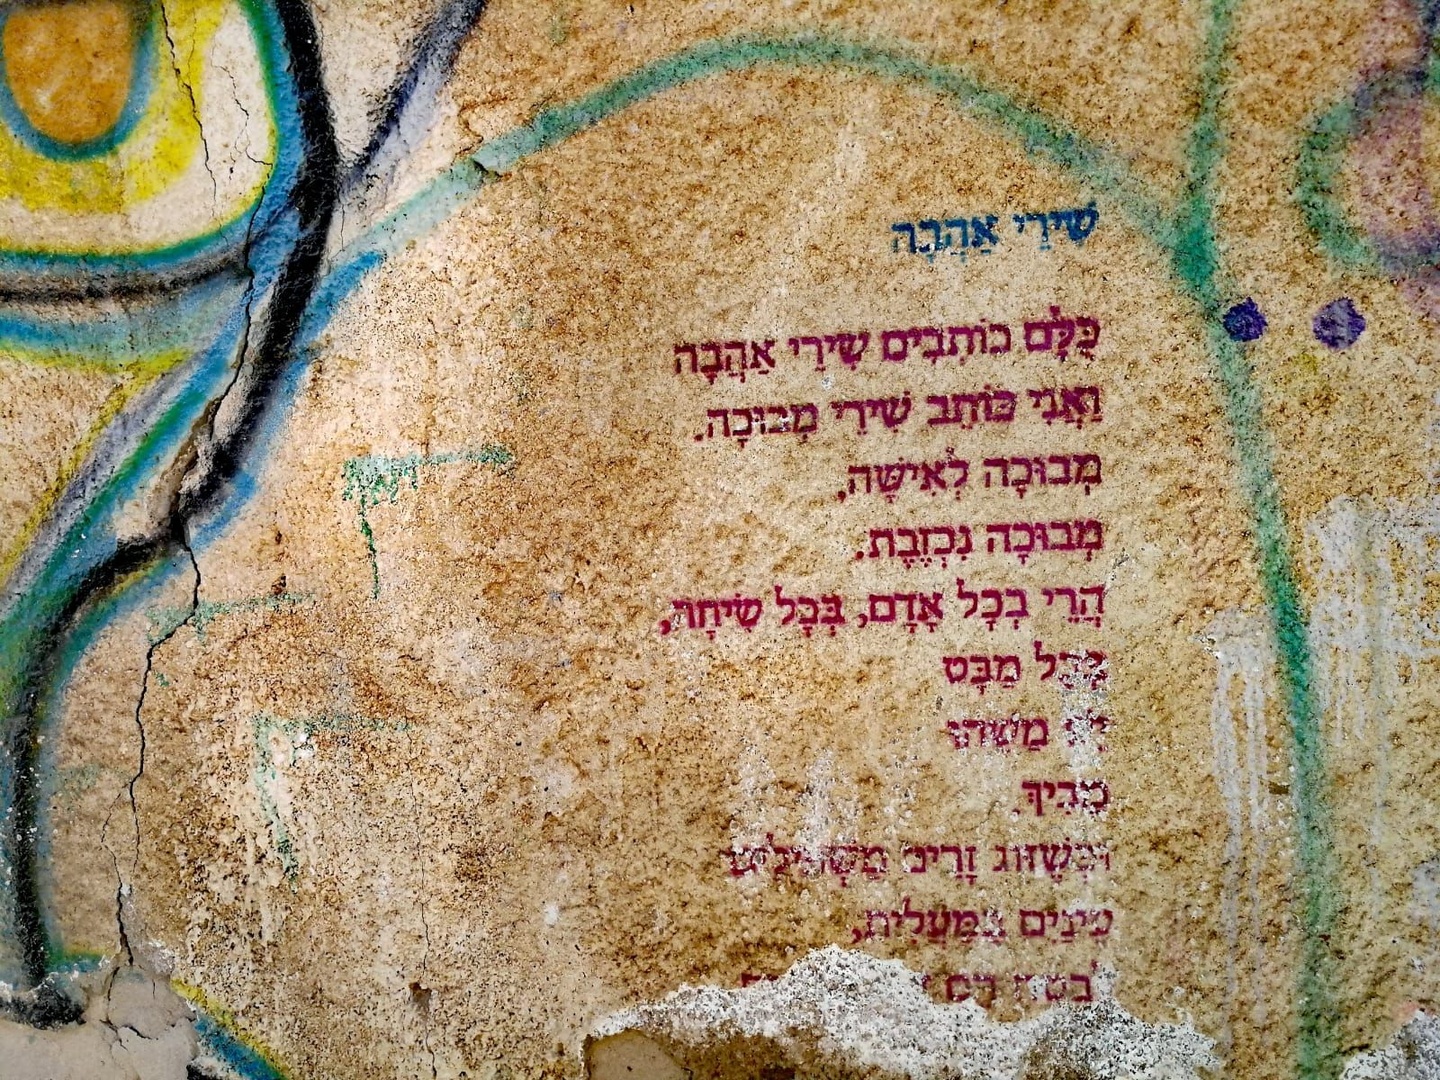 שִׁירֵי אַהֲבָה
כֻּלָּם כּוֹתְבִים שִׁירֵי אַהֲבָה
וַאֲנִי כּוֹתֵב שִׁירֵי מְבוּכָה.
מְבוּכָה לְאִישָּׁה,
מְבוּכָה נִכְזֶבֶת.
הֲרֵי בְּכָל אָדָם, בְּכָל שִׂיחָה,
בְּכָל מַבָּט
יֵשׁ מַשֶּׁהוּ
מֵבִיךְ.
וּכְשֶׁזּוּג זָרִים מַשְׁפִּילִים
עֵינַיִם בַּמַּעֲלִית,
גַּם